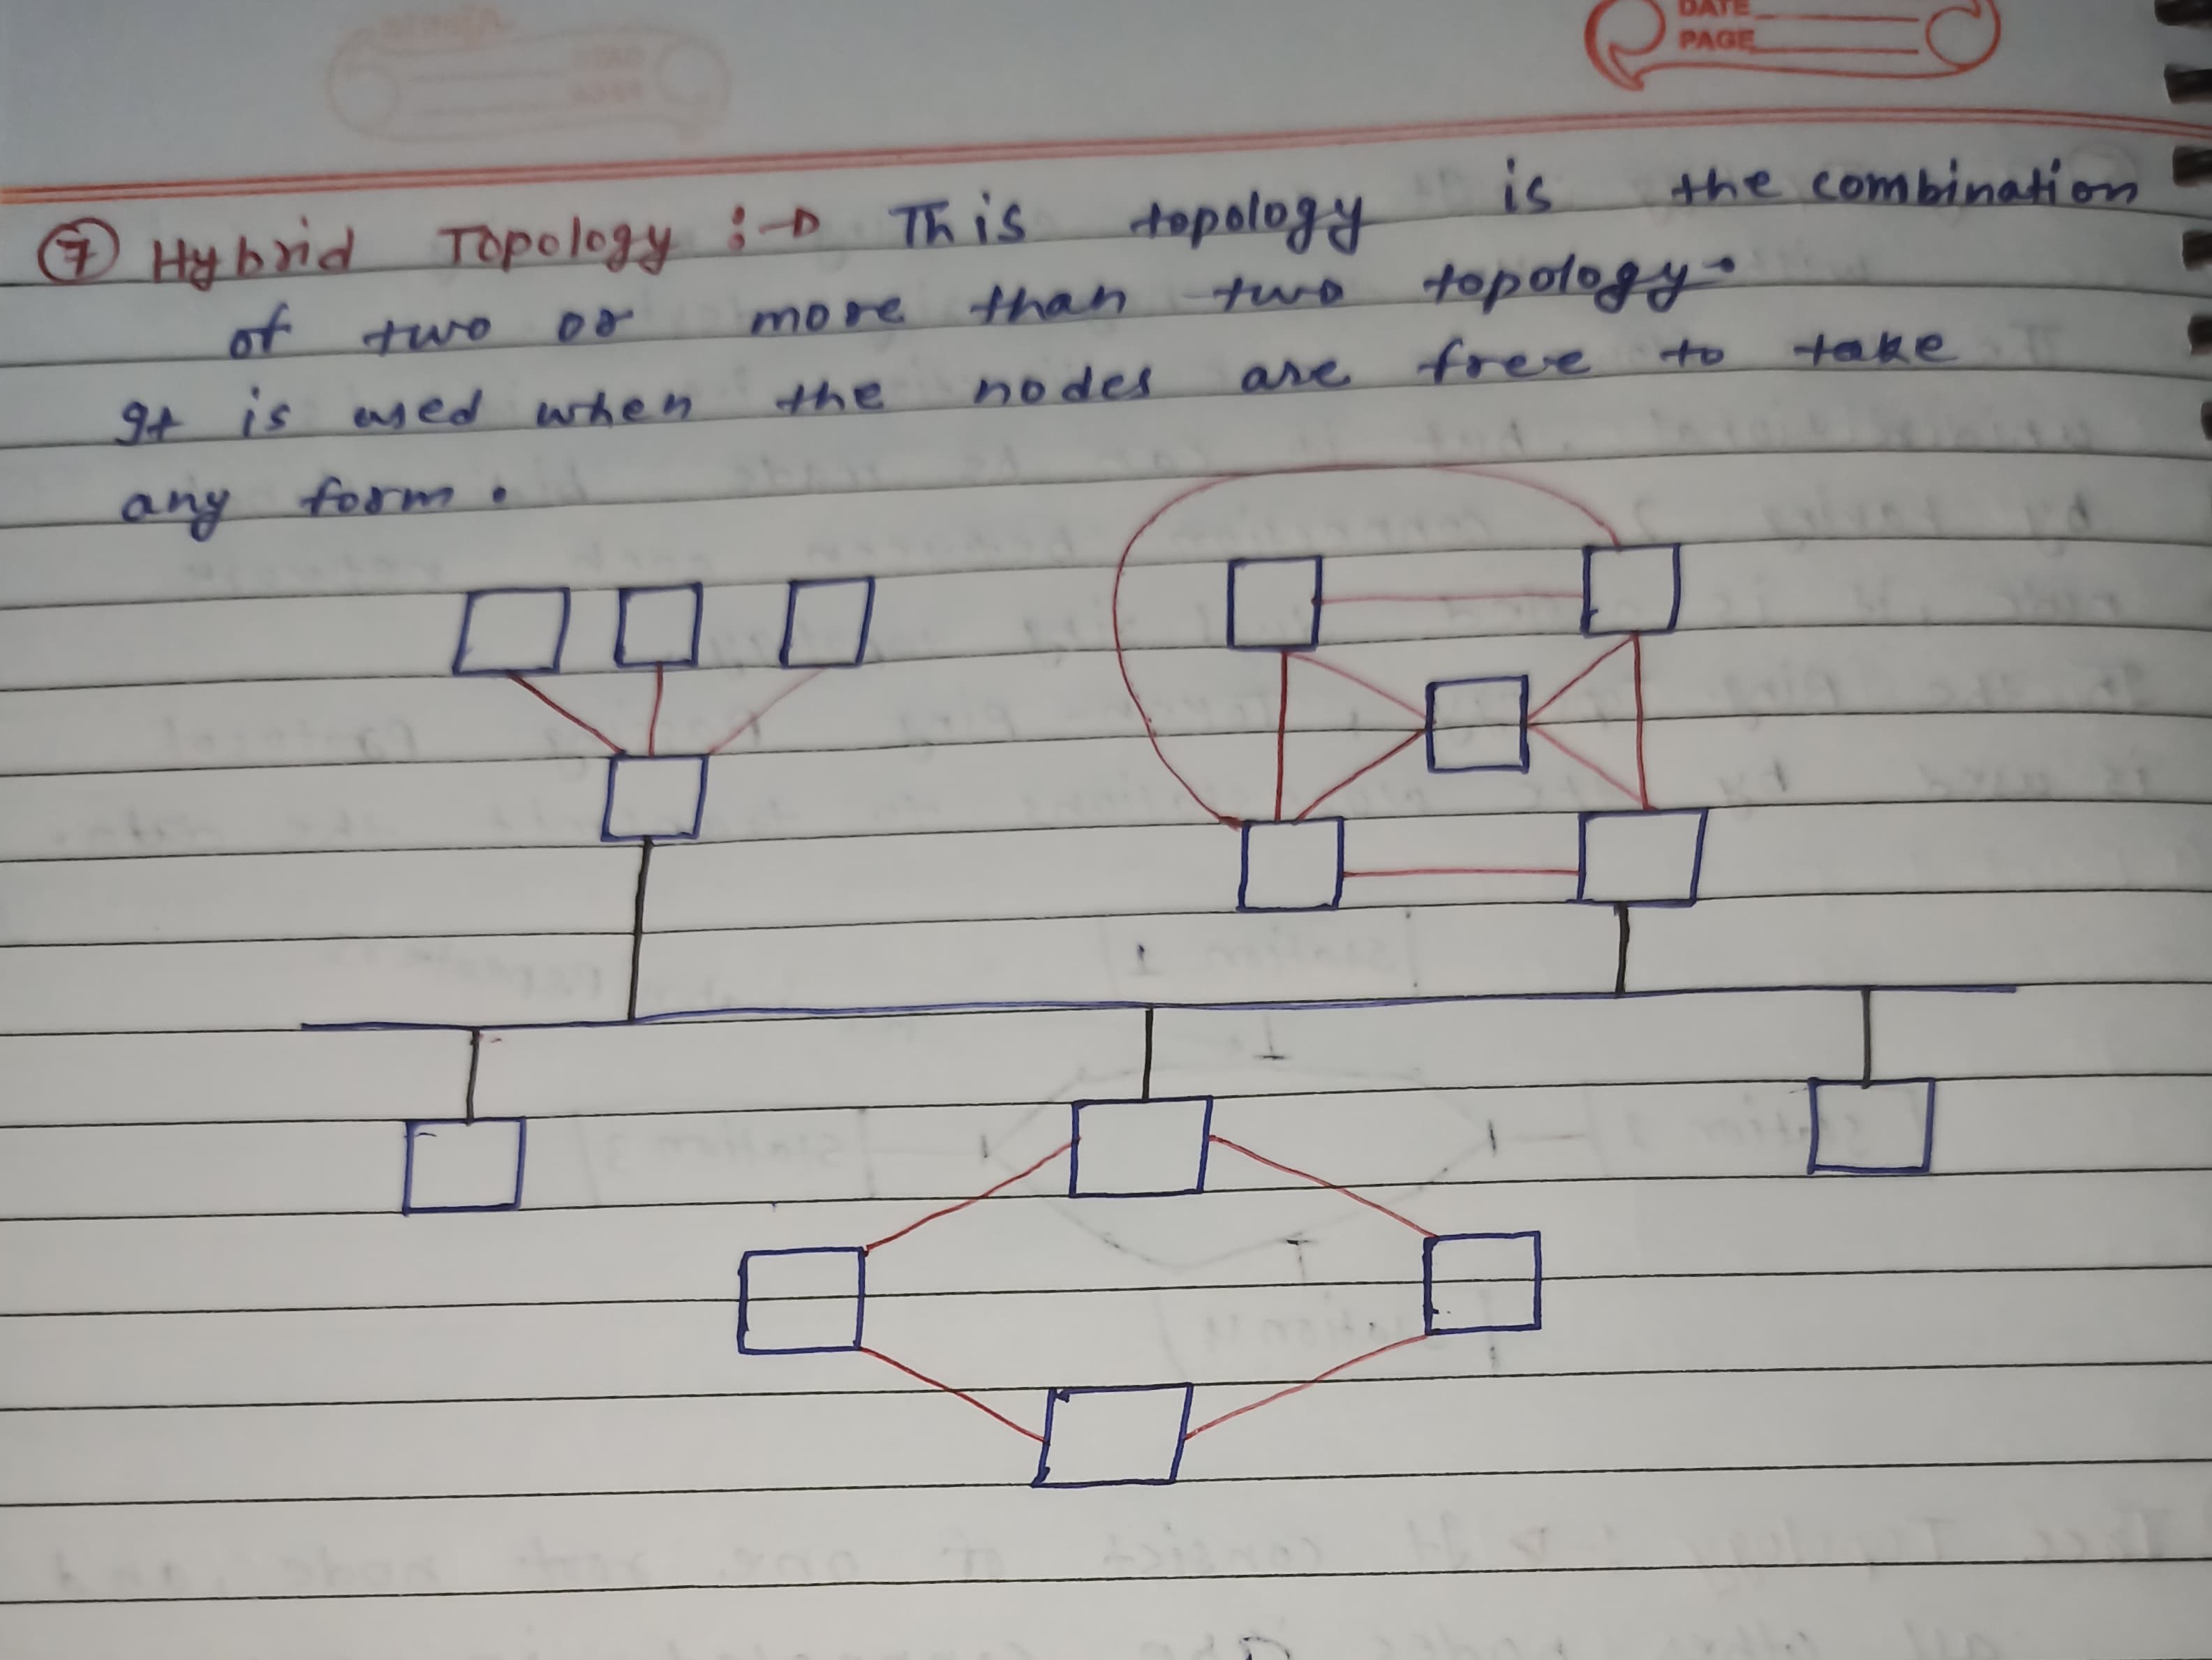 DATE
PAGE
⑦ Hybrid Topology :-> This topology is the combination
of two or more than two topology.
It is used when the nodes are free to take
any form.